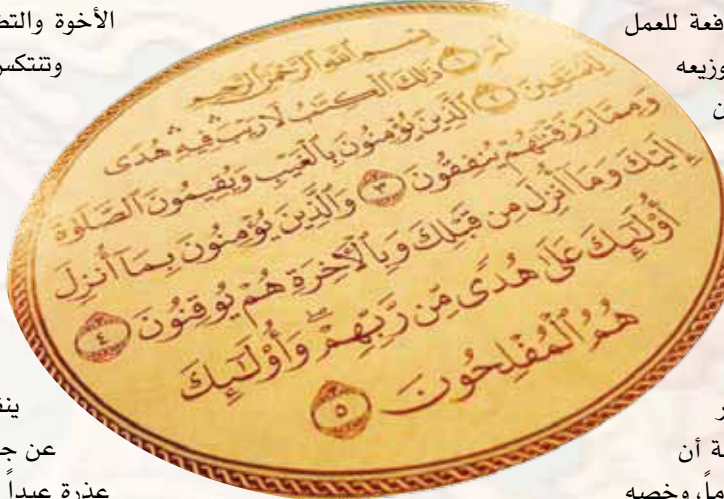 الأخوة والتض
وتنتكس
فعة للعمل
وزيعه
بِسْمِ ٱللَّهِ ٱلرَّحْمَٰنِ ٱلرَّحِيمِ
الٓمٓ ١ ذَٰلِكَ ٱلْكِتَٰبُ لَا رَيْبَ فِيهِ هُدًى
لِّلْمُتَّقِينَ ٢ ٱلَّذِينَ يُؤْمِنُونَ بِٱلْغَيْبِ وَيُقِيمُونَ ٱلصَّلَوٰةَ
وَمِمَّا رَزَقْنَٰهُمْ يُنفِقُونَ ٣ وَٱلَّذِينَ يُؤْمِنُونَ بِمَآ أُنزِلَ
إِلَيْكَ وَمَآ أُنزِلَ مِن قَبْلِكَ وَبِٱلْأَخِرَةِ هُمْ يُوقِنُونَ ٤
أُو۟لَٰٓئِكَ عَلَىٰ هُدًى مِّن رَّبِّهِمْ وَأُو۟لَٰٓئِكَ
هُمُ ٱلْمُفْلِحُونَ ٥
ة أن
ملاً، وخصه
عن ج
عذرة عبداً